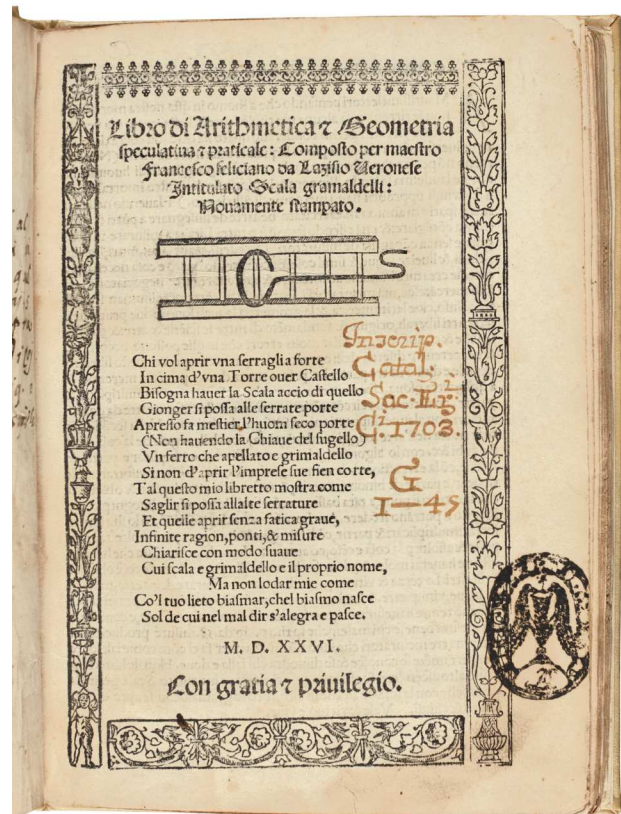 Libro di Arithmetica ⁊ Geometria
speculatiua ⁊ praticale: Composto per maestro
Francesco feliciano da Lazisio Ueronese
Intitulato Scala gramaldelli:
Nouamente stampato.
Chi vol aprir vna serraglia forte
In cima d'vna Torre ouer Castello
Bisogna hauer la Scala accio di quello
Gionger si possa alle serrate porte
Apresso fa mestier l'huom seco porte
(Non hauendo la Chiaue del sugello)
Vn ferro che apellato e grimaldello
Si non d'aprir l'imprese sue fien corte,
Tal questo mio libretto mostra come
Saglir si possa allalte serrature
Et quelle aprir senza fatica graue,
Infinite ragion, ponti, & misure
Chiarisce con modo suaue
Cui scala e grimaldello e il proprio nome,
Ma non lodar mie come
Co'l tuo lieto biasmar, chel biasmo nasce
Sol de cui nel mal dir s'alegra e pasce.
M. D. XXVI.
Con gratia ⁊ priuilegio.
Inscrip.
Catal.
Soc.
G. 1703.
G
I—45